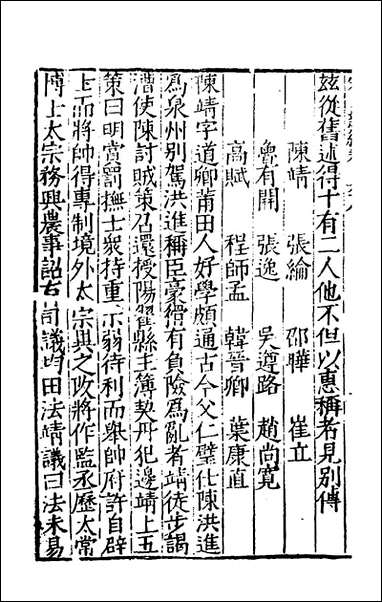 兹從舊述得十有二人他不但以惠稱者見別傳
陳靖 張綸 邵曄 崔立
魯有開 張逸 吳遵路 趙尚寛
高賦 程師孟 韓晉卿 葉康直
陳靖字道卿莆田人好學頗通古今父仁璧仕陳洪進
爲泉州別駕洪進稱臣豪猾有負險爲亂者靖徒步謁
漕使陳討賊策召還授陽翟縣主簿契丹犯邊靖上五
策曰明賞罰撫士衆持重示弱待利而舉帥府許自辟
士而將帥得專制境外太宗與之改將作監丞歷太常
博士太宗務興農事詔有司議均田法靖議曰法未易